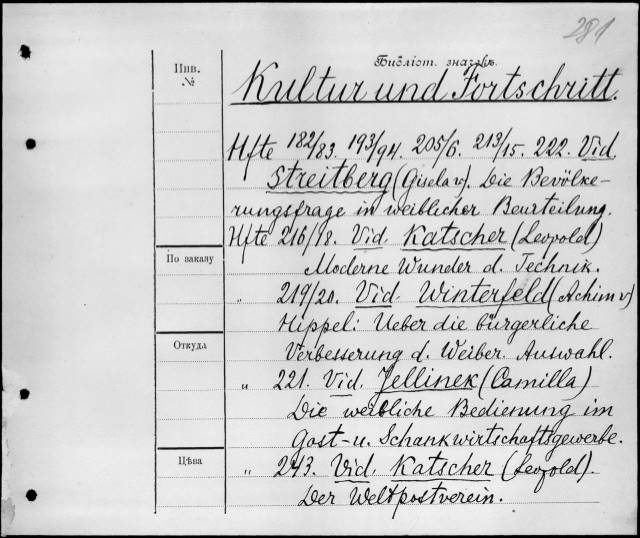 281
Библіот. значекъ.
Инв.
№
Kultur und Fortschritt.
Hfte 182/83. 193/94. 205/6. 213/15. 222. Vid.
Streitberg (Gisela v). Die Bevölke-
rungsfrage in weiblicher Beurteilung.
Hfte 216/18. Vid. Katscher (Leopold)
По заказу
Moderne Wunder d. Technik.
„ 219/20. Vid. Winterfeld (Achim v)
Hippel: Ueber die bürgerliche
Откуда
Verbesserung d. Weiber. Auswahl.
„ 221. Vid. Jellinek (Camilla)
Die weibliche Bedienung im
Gast- u. Schankwirtschaftsgewerbe.
Цѣна
„ 243. Vid. Katscher (Leopold).
Der Weltpostverein.